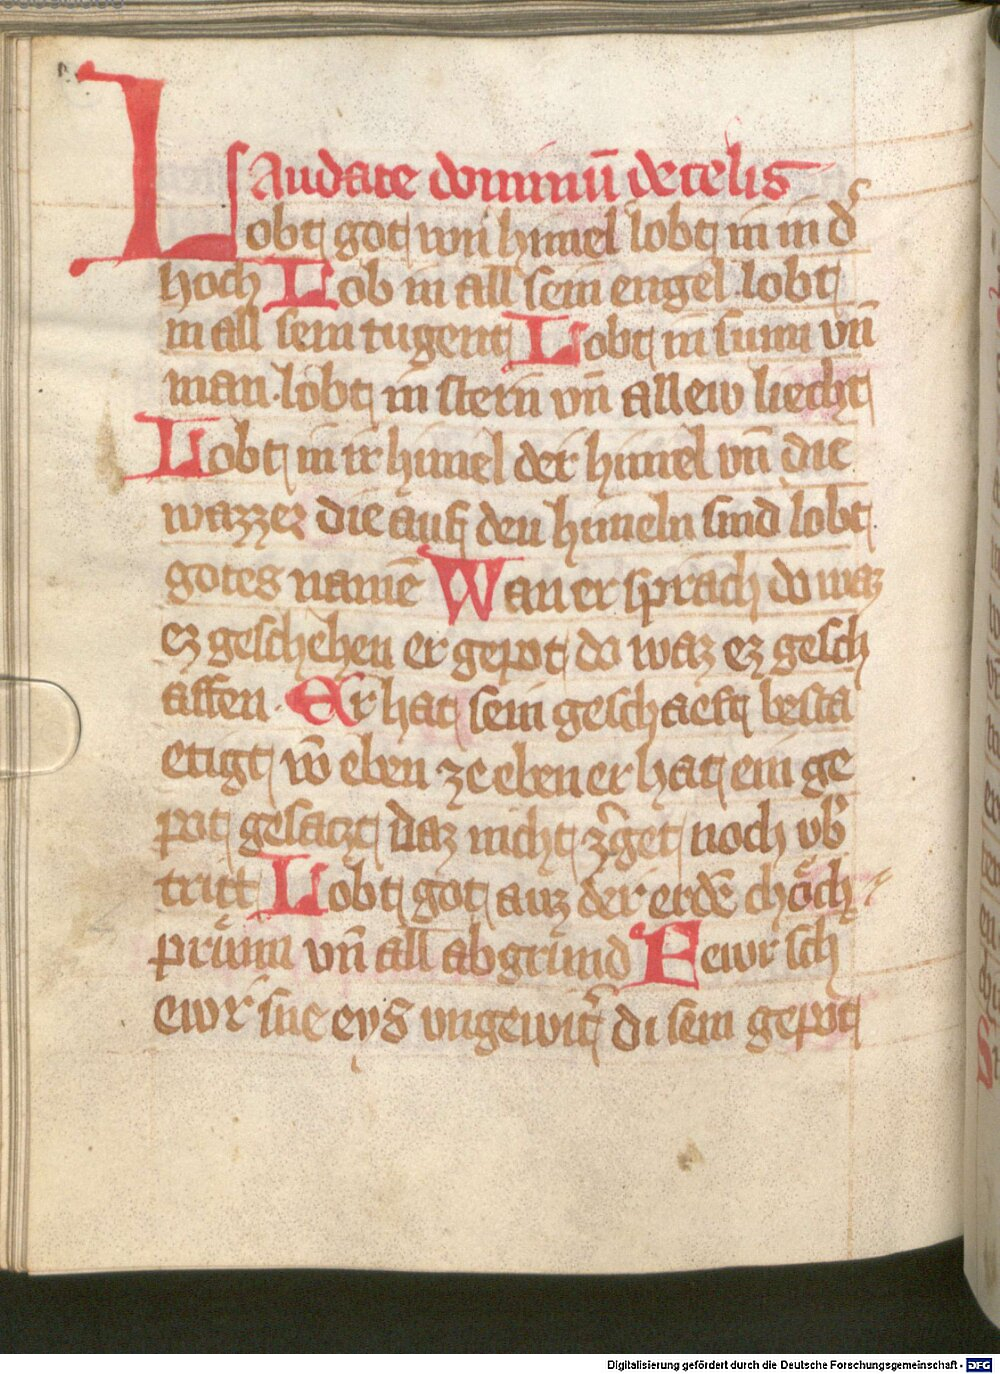 Laudate dominū de celis
Lobt got von himel lobt in in dˢ
hoch Lob in all sein engel lobt
in all sein tugent Lobt in sunn vn̄
man. lobt in stern̄ vn̄ allew liecht
Lobt in ir himel der himel vn̄ die
wazzer die auf den himeln sind lobt
gotes namē Wan er sprach do waz
ez geschehen er gepot do waz ez gesch
affen. Er hat sein geschaeft besta
etigt vn̄ eben ze eben er hat ein ge
pot gesaczt daz nicht zˢget noch vbˢ
tritt Lobt got auz der erdē choͤch
pruͤnn vn̄ all abgrund Fewr sch
ewr sne eys vngewitˢ di sein gepot
Digitalisierung gefördert durch die Deutsche Forschungsgemeinschaft - DFG